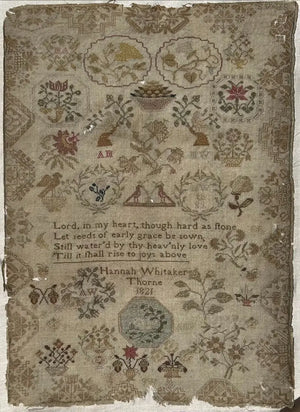 AB
Lord, in my heart, though hard as stone
Let seeds of early grace be sown,
Still water'd by thy heav'nly love
Till it shall rise to joys above
Hannah Whitaker
Thorne
AW
1821